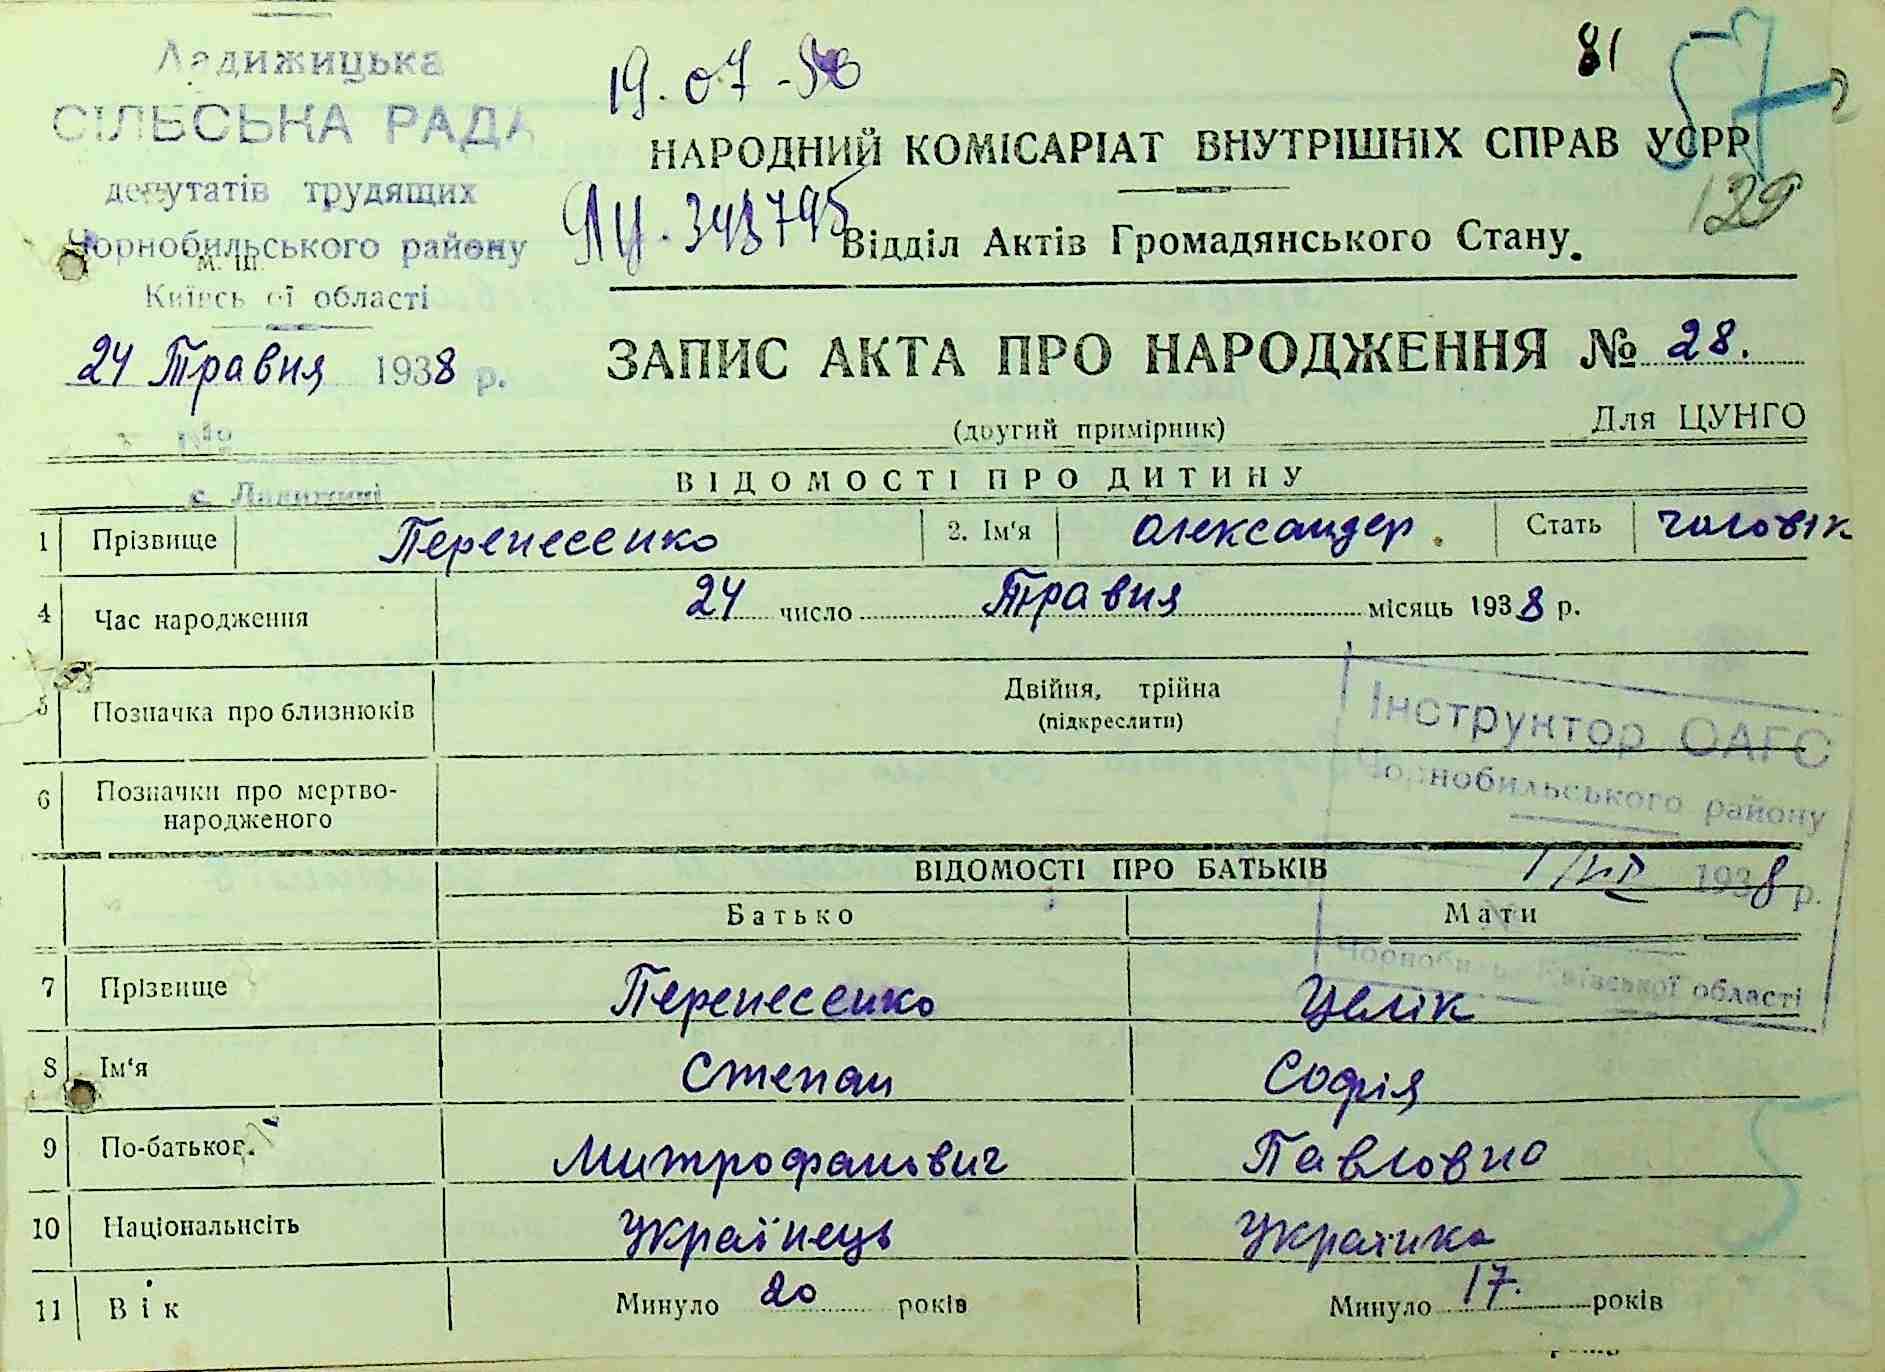 Ладижицька
СІЛЬСЬКА РАДА
депутатів трудящих
Чорнобильського району
М. П.
Київської області
24 Травня 1938 р.
с. Ладижичі
19.07-56
81
НАРОДНИЙ КОМІСАРІАТ ВНУТРІШНІХ СПРАВ УСРР
129
ЯЦ. 343795
Відділ Актів Громадянського Стану.
ЗАПИС АКТА ПРО НАРОДЖЕННЯ № 28.
(другий примірник)
Для ЦУНГО
ВІДОМОСТІ ПРО ДИТИНУ
1 Прізвище Перепесенко 2. Ім'я Олександер. Стать чоловік
4 Час народження 24 число Травня місяць 1938 р.
5 Позначка про близнюків Двійня, трійна
(підкреслити)
6 Позначки про мертво-
народженого
Інструктор ОАГС
Чорнобильського району
1/VII 1938 р.
Чорнобиль Київської області
ВІДОМОСТІ ПРО БАТЬКІВ
Батько Мати
7 Прізвище Перепесенко Целік
8 Ім'я Степан Софія
9 По-батьков. Митрофанович Павловна
10 Національність Українець Українка
11 Вік Минуло 20 років Минуло 17. років